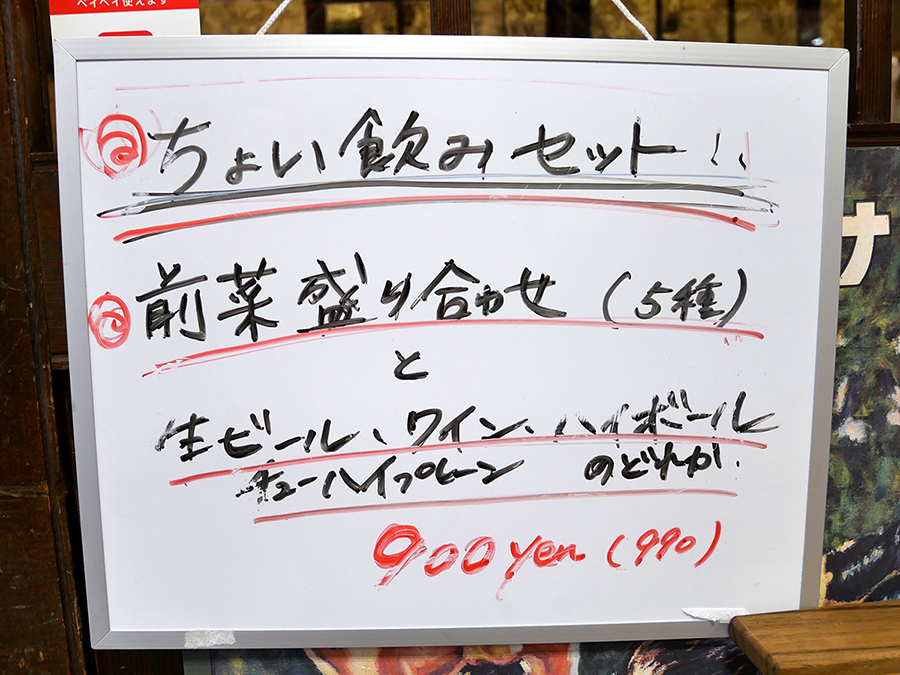 ペイペイ使えます
ちょい飲みセット!!
前菜盛り合わせ (5種)
と
生ビール、ワイン、ハイボール
チューハイプレーン のどれか.
900 yen (990)
サ